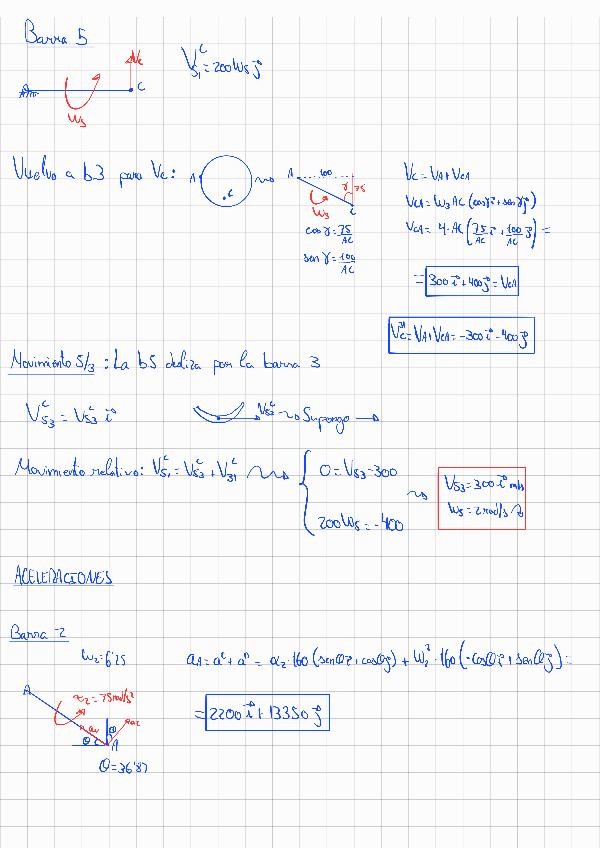 Barra 5
V₅₁ᶜ = 200 W₅ j⃗
Vc
C
W₅
Vuelvo a b3 para Vc:
A
C
A
100
γ
75
C
W₃
cos γ = 75/AC
sen γ = 100/AC
Vc = VA + VCA
VCA = W₃ AC (cos γ i⃗ + sen γ j⃗)
VCA = 4·AC (75/AC i⃗ + 100/AC j⃗) =
= 300 i⃗ + 400 j⃗ = VCA
Vc³¹ = VA + VCA = -300 i⃗ - 400 j⃗
Movimiento 5/3: La b5 desliza por la barra 3
V₅₃ᶜ = V₅₃ᶜ i⃗
V₅₃ᶜ Supongo →
Movimiento relativo: V₅₁ᶜ = V₅₃ᶜ + V₃₁ᶜ
0 = V₅₃ - 300
200 W₅ = -400
V₅₃ = 300 i⃗ m/s
W₅ = 2 rad/s
ACELERACIONES
Barra 2
W₂ = 6'25
aA = aᵗ + aⁿ = α₂·160 (sen θ i⃗ + cos θ j⃗) + W₂²·160 (-cos θ i⃗ + sen θ j⃗) =
= 2200 i⃗ + 13350 j⃗
A
α₂ = 75 rad/s²
θ
θ
A
θ = 36'87